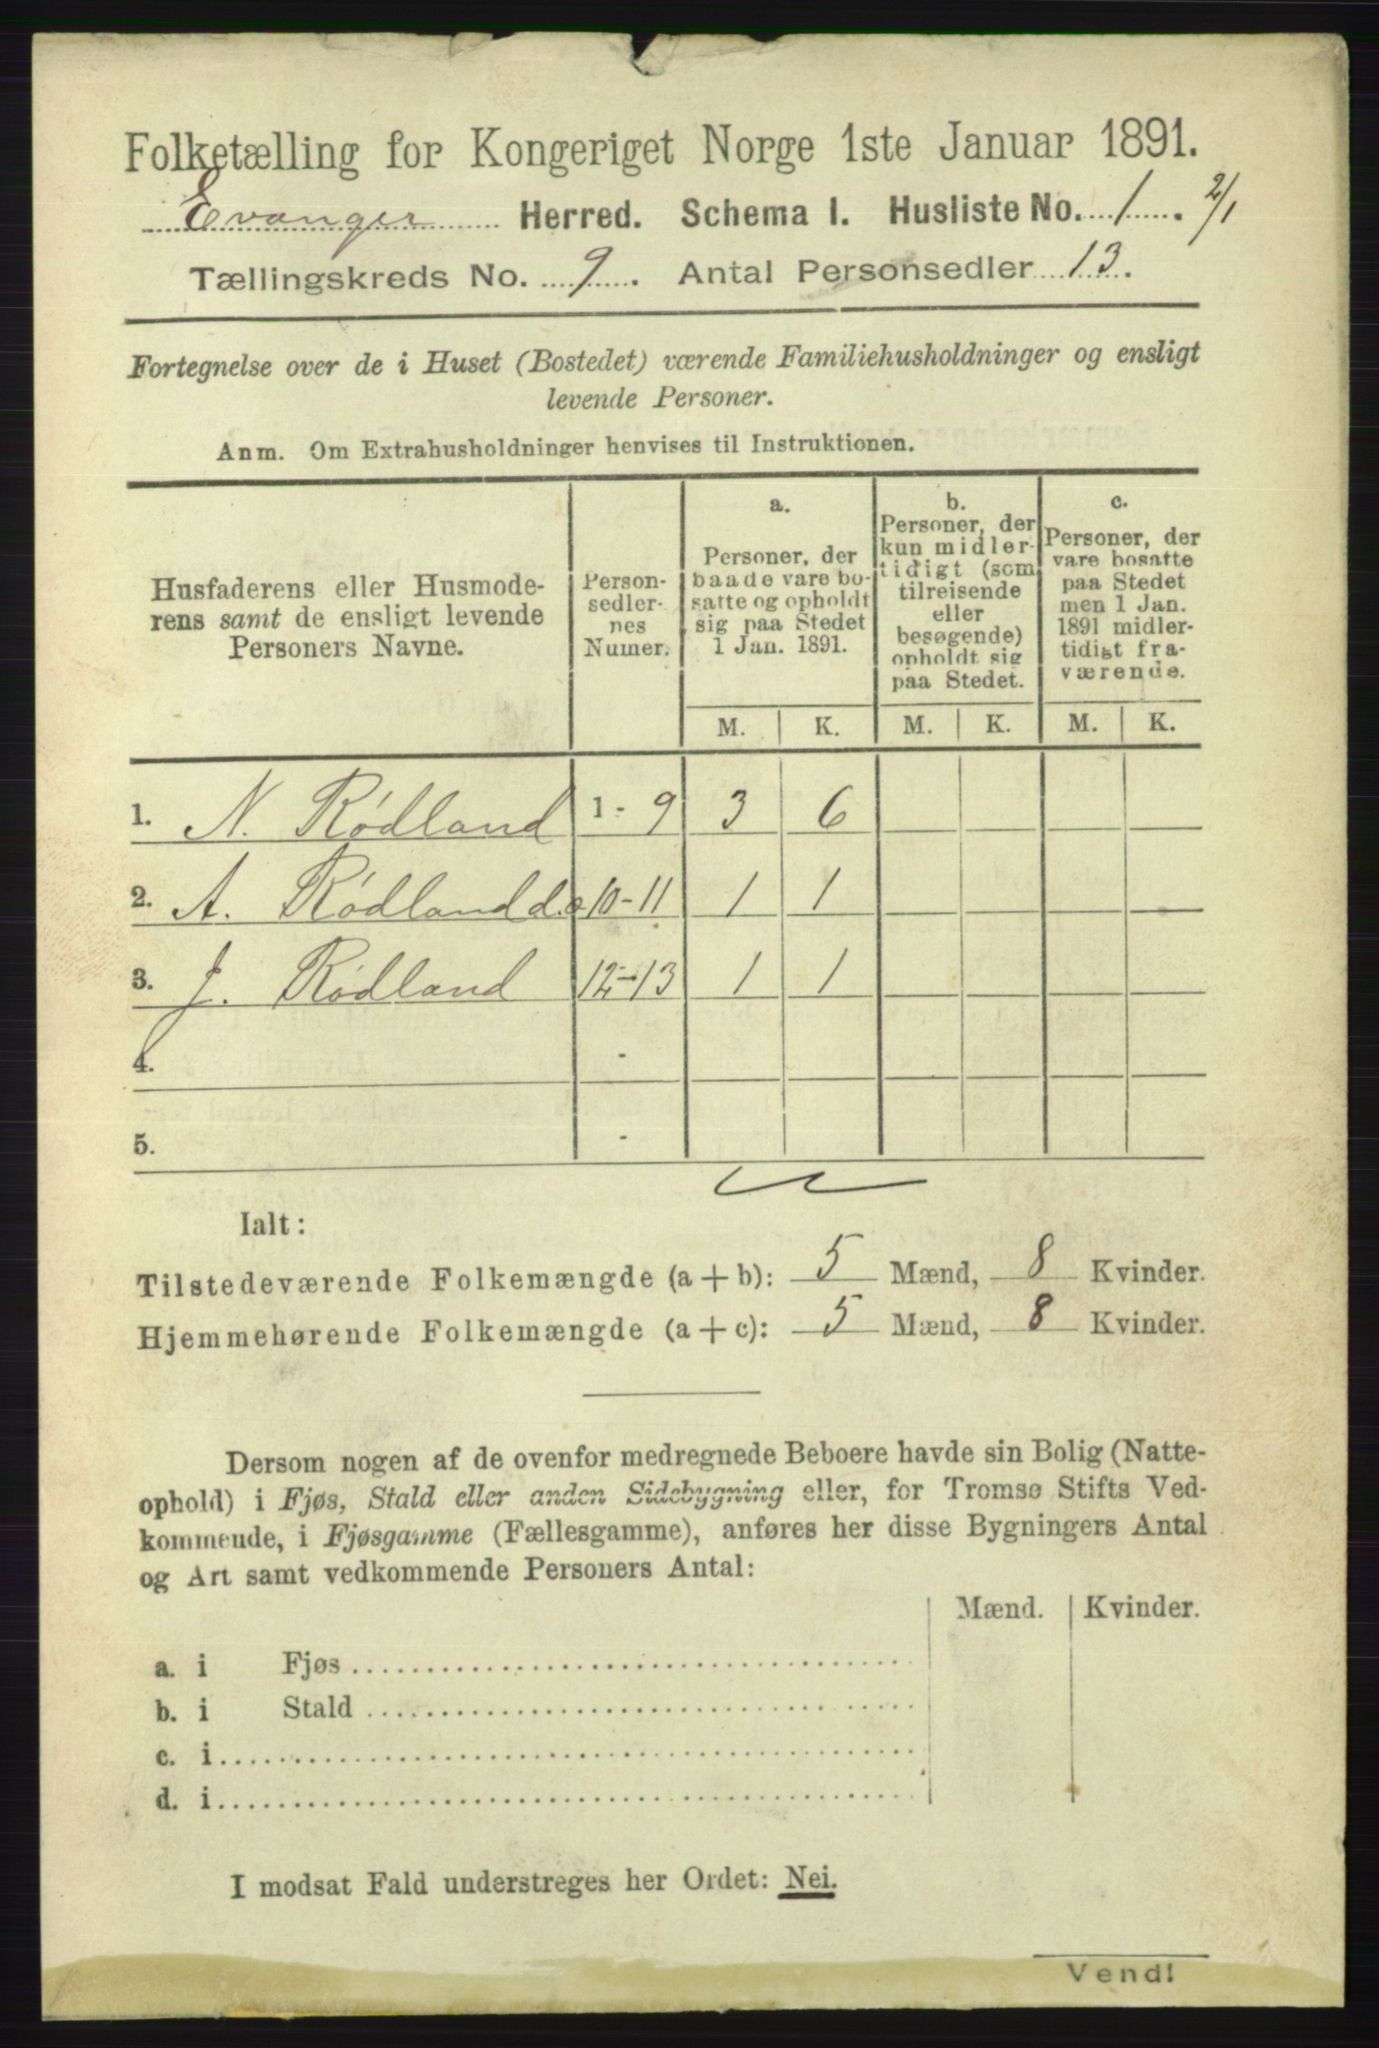 Folketælling for Kongeriget Norge 1ste Januar 1891.
Evanger Herred. Schema I. Husliste No. 1. 2/1
Tællingskreds No. 9. Antal Personsedler 13.
Fortegnelse over de i Huset (Bostedet) værende Familiehusholdninger og ensligt
levende Personer.
Anm. Om Extrahusholdninger henvises til Instruktionen.
Husfaderens eller Husmode-
rens samt de ensligt levende
Personers Navne.
Person-
sedler-
nes
Numer.
a.
Personer, der
baade vare bo-
satte og opholdt
sig paa Stedet
1 Jan. 1891.
b.
Personer, der
kun midler-
tidigt (som
tilreisende
eller
besøgende)
opholdt sig
paa Stedet.
c.
Personer, der
vare bosatte
paa Stedet
men 1 Jan.
1891 midler-
tidigt fra-
værende.
M. K. M. K. M. K.
1. N. Rødland 1-9 3 6
2. A. Rødland do 10-11 1 1
3. J. Rødland 12-13 1 1
4. -
5. -
Ialt:
Tilstedeværende Folkemængde (a+b): 5 Mænd, 8 Kvinder.
Hjemmehørende Folkemængde (a+c): 5 Mænd, 8 Kvinder.
Dersom nogen af de ovenfor medregnede Beboere havde sin Bolig (Natte-
ophold) i Fjøs, Stald eller anden Sidebygning eller, for Tromsø Stifts Ved-
kommende, i Fjøsgamme (Fællesgamme), anføres her disse Bygningers Antal
og Art samt vedkommende Personers Antal:
Mænd. Kvinder.
a. i Fjøs
b. i Stald
c. i
d. i
I modsat Fald understreges her Ordet: Nei.
Vend!